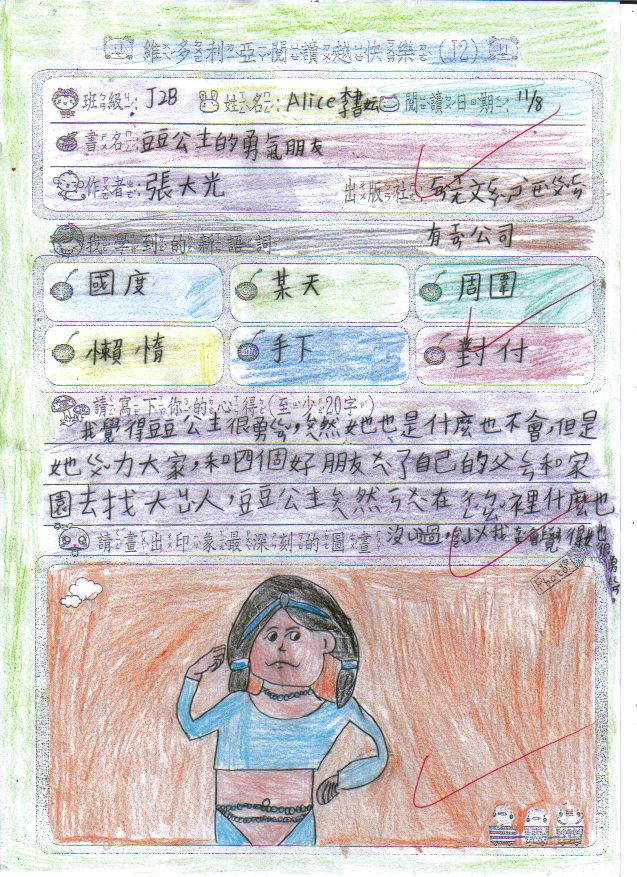 維多利亞閱讀越快樂(J2)
班級: J2B 姓名: Alice 李 閱讀日期: 11/8
書名: 豆豆公主的勇氣朋友
作者: 張大光 出版社: 文
有 公司
我學到的新語詞
國度 某天 周圍
懶惰 手下 對付
請寫下你的心得(至少20字)
我覺得豆豆公主很勇ㄍㄢˇ,ㄙㄨㄟ然她也是什麼也不會,但是
她 力大家,和四個好朋友ㄨㄟˋ了自己的父 和家
園去找大 人,豆豆公主ㄙㄨㄟ然 在 裡什麼也
沒 過, 我 覺得她也很勇
請畫出印象最深刻的圖畫
Photo